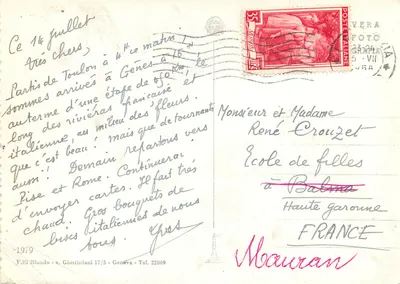 Ce 14 juillet
Très chers,
Partis de Toulon à 4h ce matin
sommes arrivés à Gênes à 16h
au terme d'une étape de le
long des rivieras française et
italienne, au milieu des fleurs.
que c'est beau! mais que de tournants
aussi!! Demain repartons vers
Pise et Rome. Continuerai
d'envoyer cartes. Il fait très
chaud. Gros bouquets de
bises italiennes de nous
tous. Yves
1979
Genova - Tel. 22069
POSTE ITALIANE
Monsieur et Madame
René Crouzet
Ecole de filles
à Balma
Haute Garonne
FRANCE
Mauran